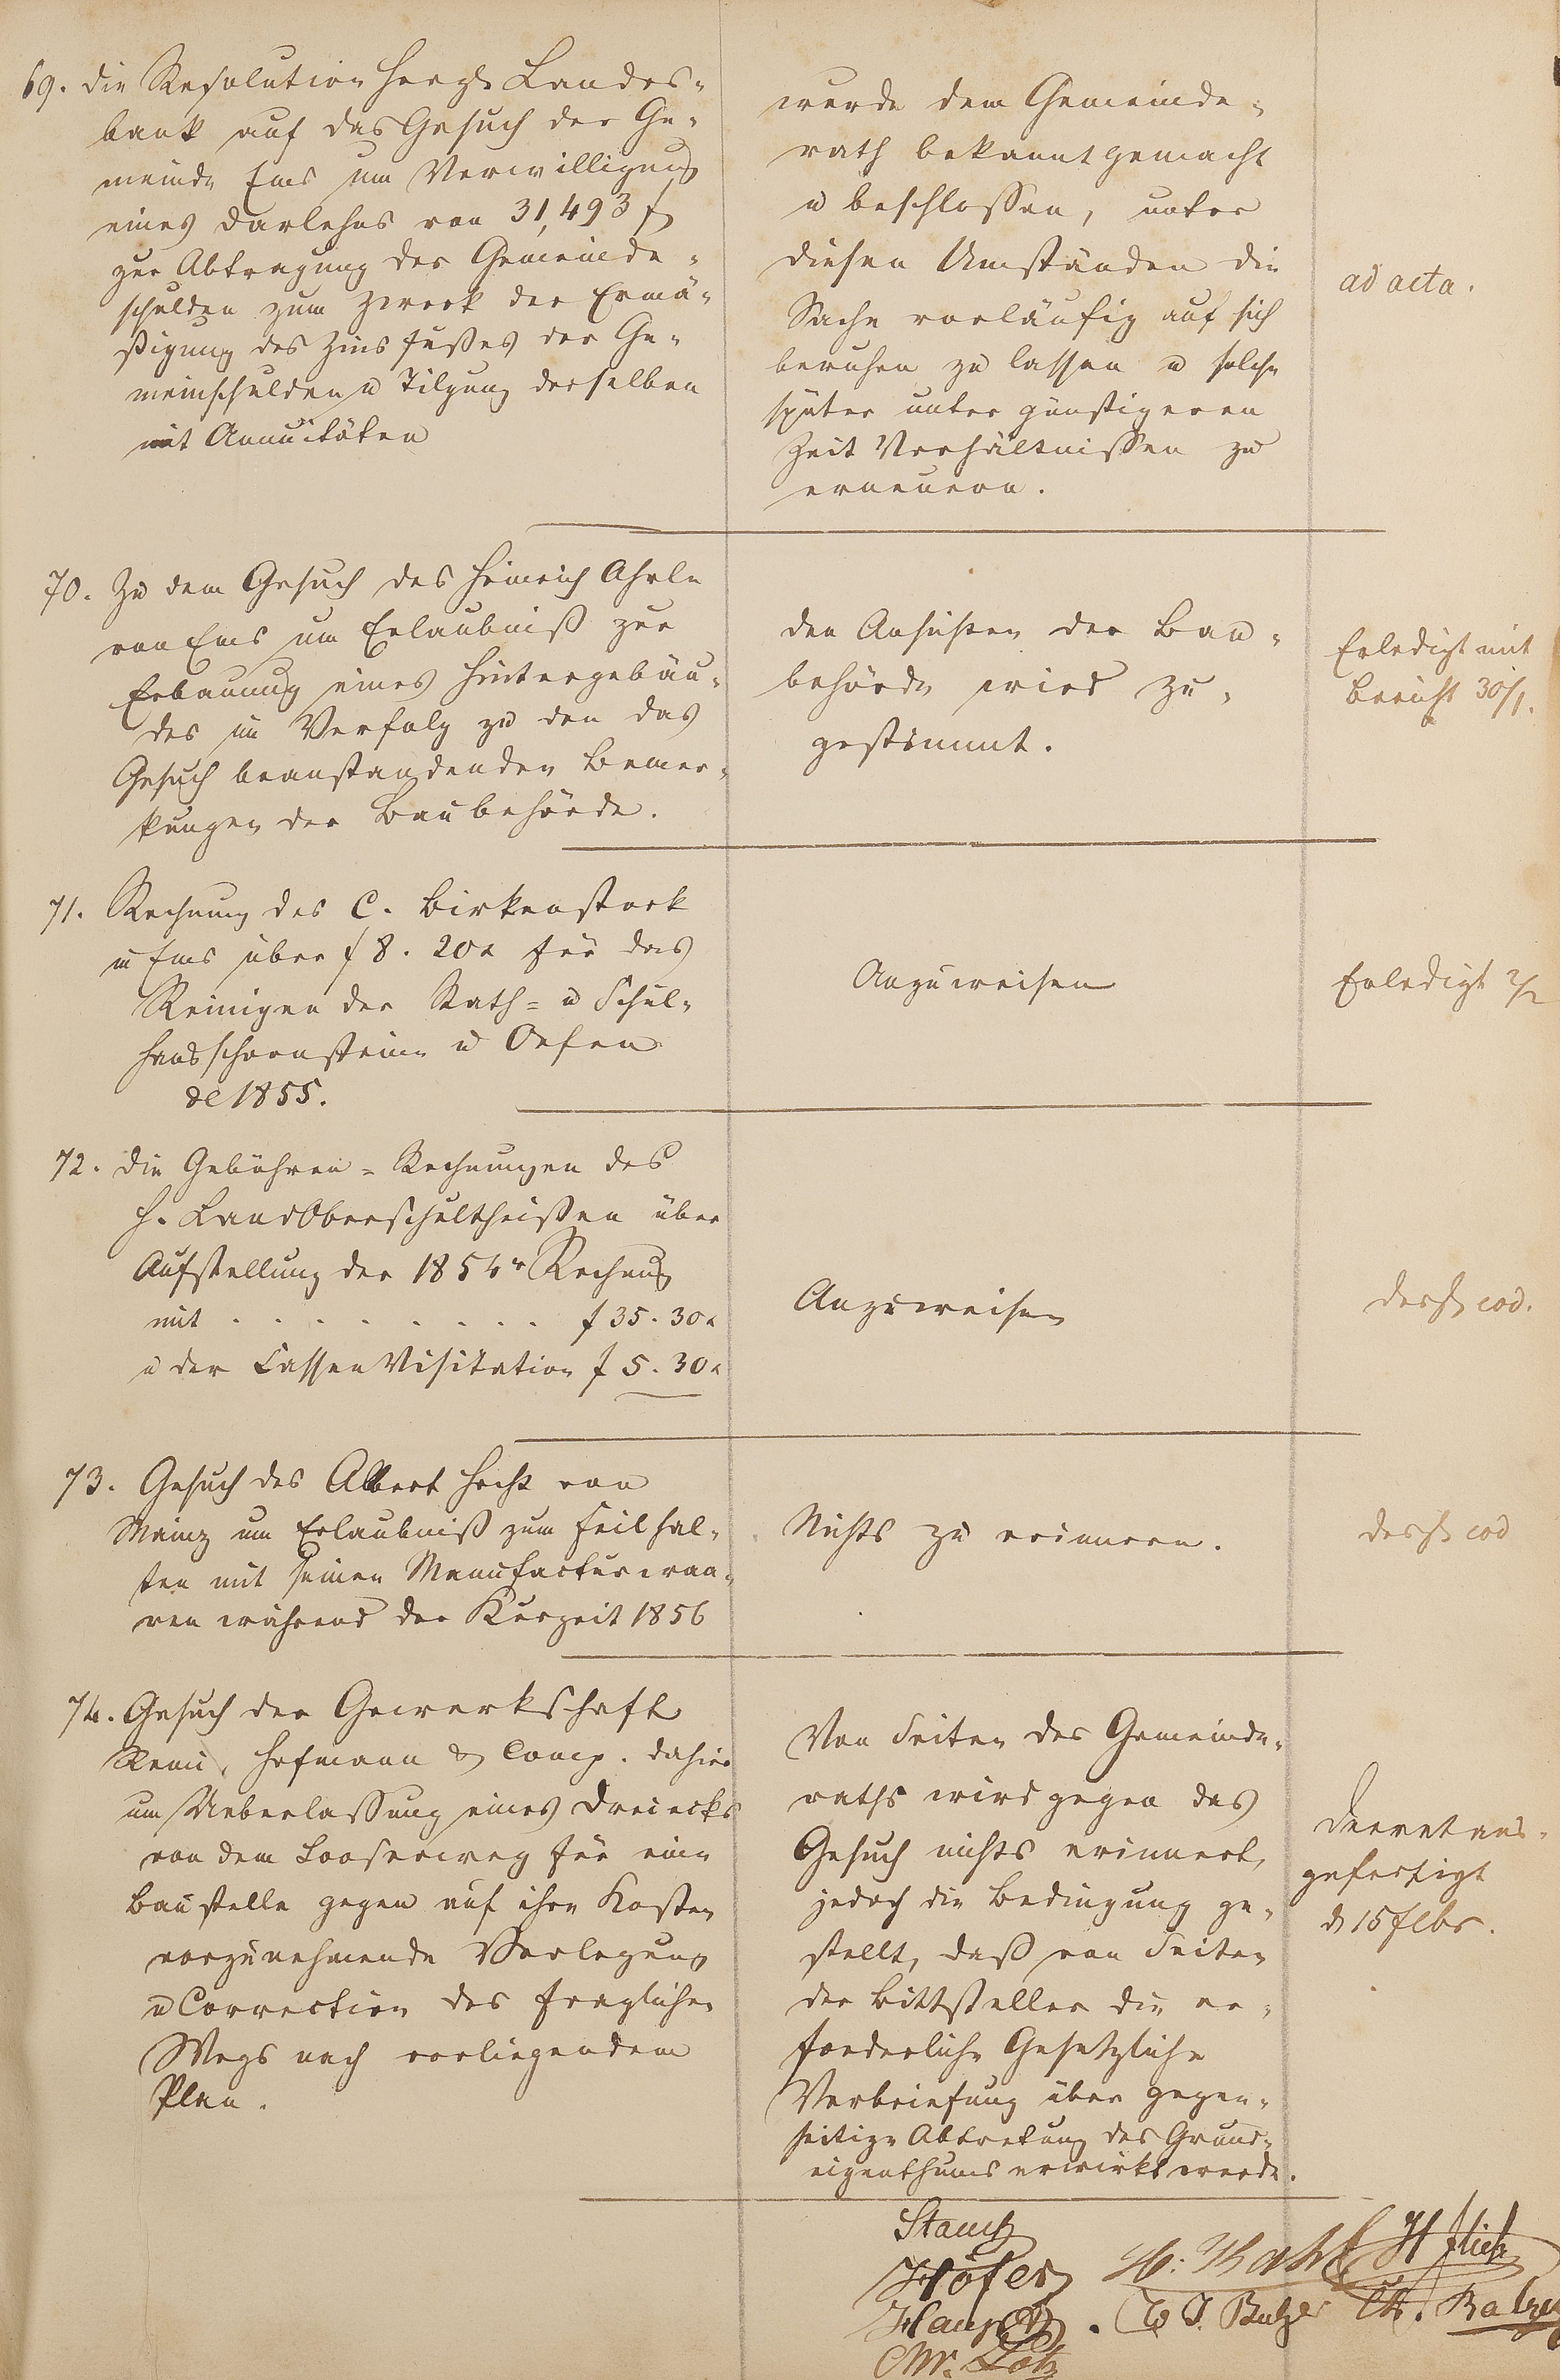 69. die Resolution Herzgl. Landes-
bank auf das Gesuch der Ge-
meinde Ems um Verwilligung
eines Darlehns von 31,493 f
zur Abtragung der Gemeinde-
schulden zum Zweck der Ermä-
ßigung des Zinsfußes der Ge-
meinschulden u Tilgung derselben
mit Annuitäten
wurde dem Gemeinde-
rath bekannt gemacht
u beschlossen, unter
diesen Umständen die
Sache vorläufig auf sich
beruhen zu lassen u solche
später unter günstigeren
Zeit Verhältnissen zu
erneuern.
ad acta.
70. Zu dem Gesuch des Heinrich Ahrle
von Ems um Erlaubniß zur
Erbauung eines Hintergebäu-
des im Verfolg zu den das
Gesuch beanstandenden Bemer-
kungen der Baubehörde.
den Ansichten der Bau-
behörde wird zu-
gestimmt.
Erledigt mit
Bericht 30/1.
71. Rechnung des C. Birkenstock
zu Ems über f 8. 20x für das
Reinigen der Rath- u Schul-
hausschornsteine u Oefen
de 1855.
Anzuweisen
Erledigt 2/2
72. die Gebühren-Rechnungen des
H. LandOberschultheißen über
Aufstellung der 1854r Rechnung
mit . . . . . . . . . f 35. 30x
u der Cassen Visitation f 5. 30x
Anzuweisen
dessgl. eod.
73. Gesuch des Albert Hecht von
Mainz um Erlaubniß zum Feilhal-
ten mit seinen Manufacturwaa-
ren während der Kurzeit 1856
Nichts zu erinnern.
dessgl. eod
74. Gesuch der Gewerkschaft
Remi, Hofmann & Comp. dahier
um Ueberlassung eines Dreiecks
von dem Looserweg für eine
Baustelle gegen auf ihre Kosten
vorzunehmende Verlegung
u Correction des fraglichen
Wegs nach vorliegendem
Plan.
Von Seiten des Gemeinde-
raths wird gegen das
Gesuch nichts erinnert,
jedoch die Bedingung ge-
stellt, daß von Seiten
der Bittsteller die er-
forderliche Gesetzliche
Verbriefung über gegen-
seitige Abtretung des Grund-
eigenthums erwirkt werde.
Decret aus-
gefertigt
d 15 Febr.
Höfer
Chr. Lotz